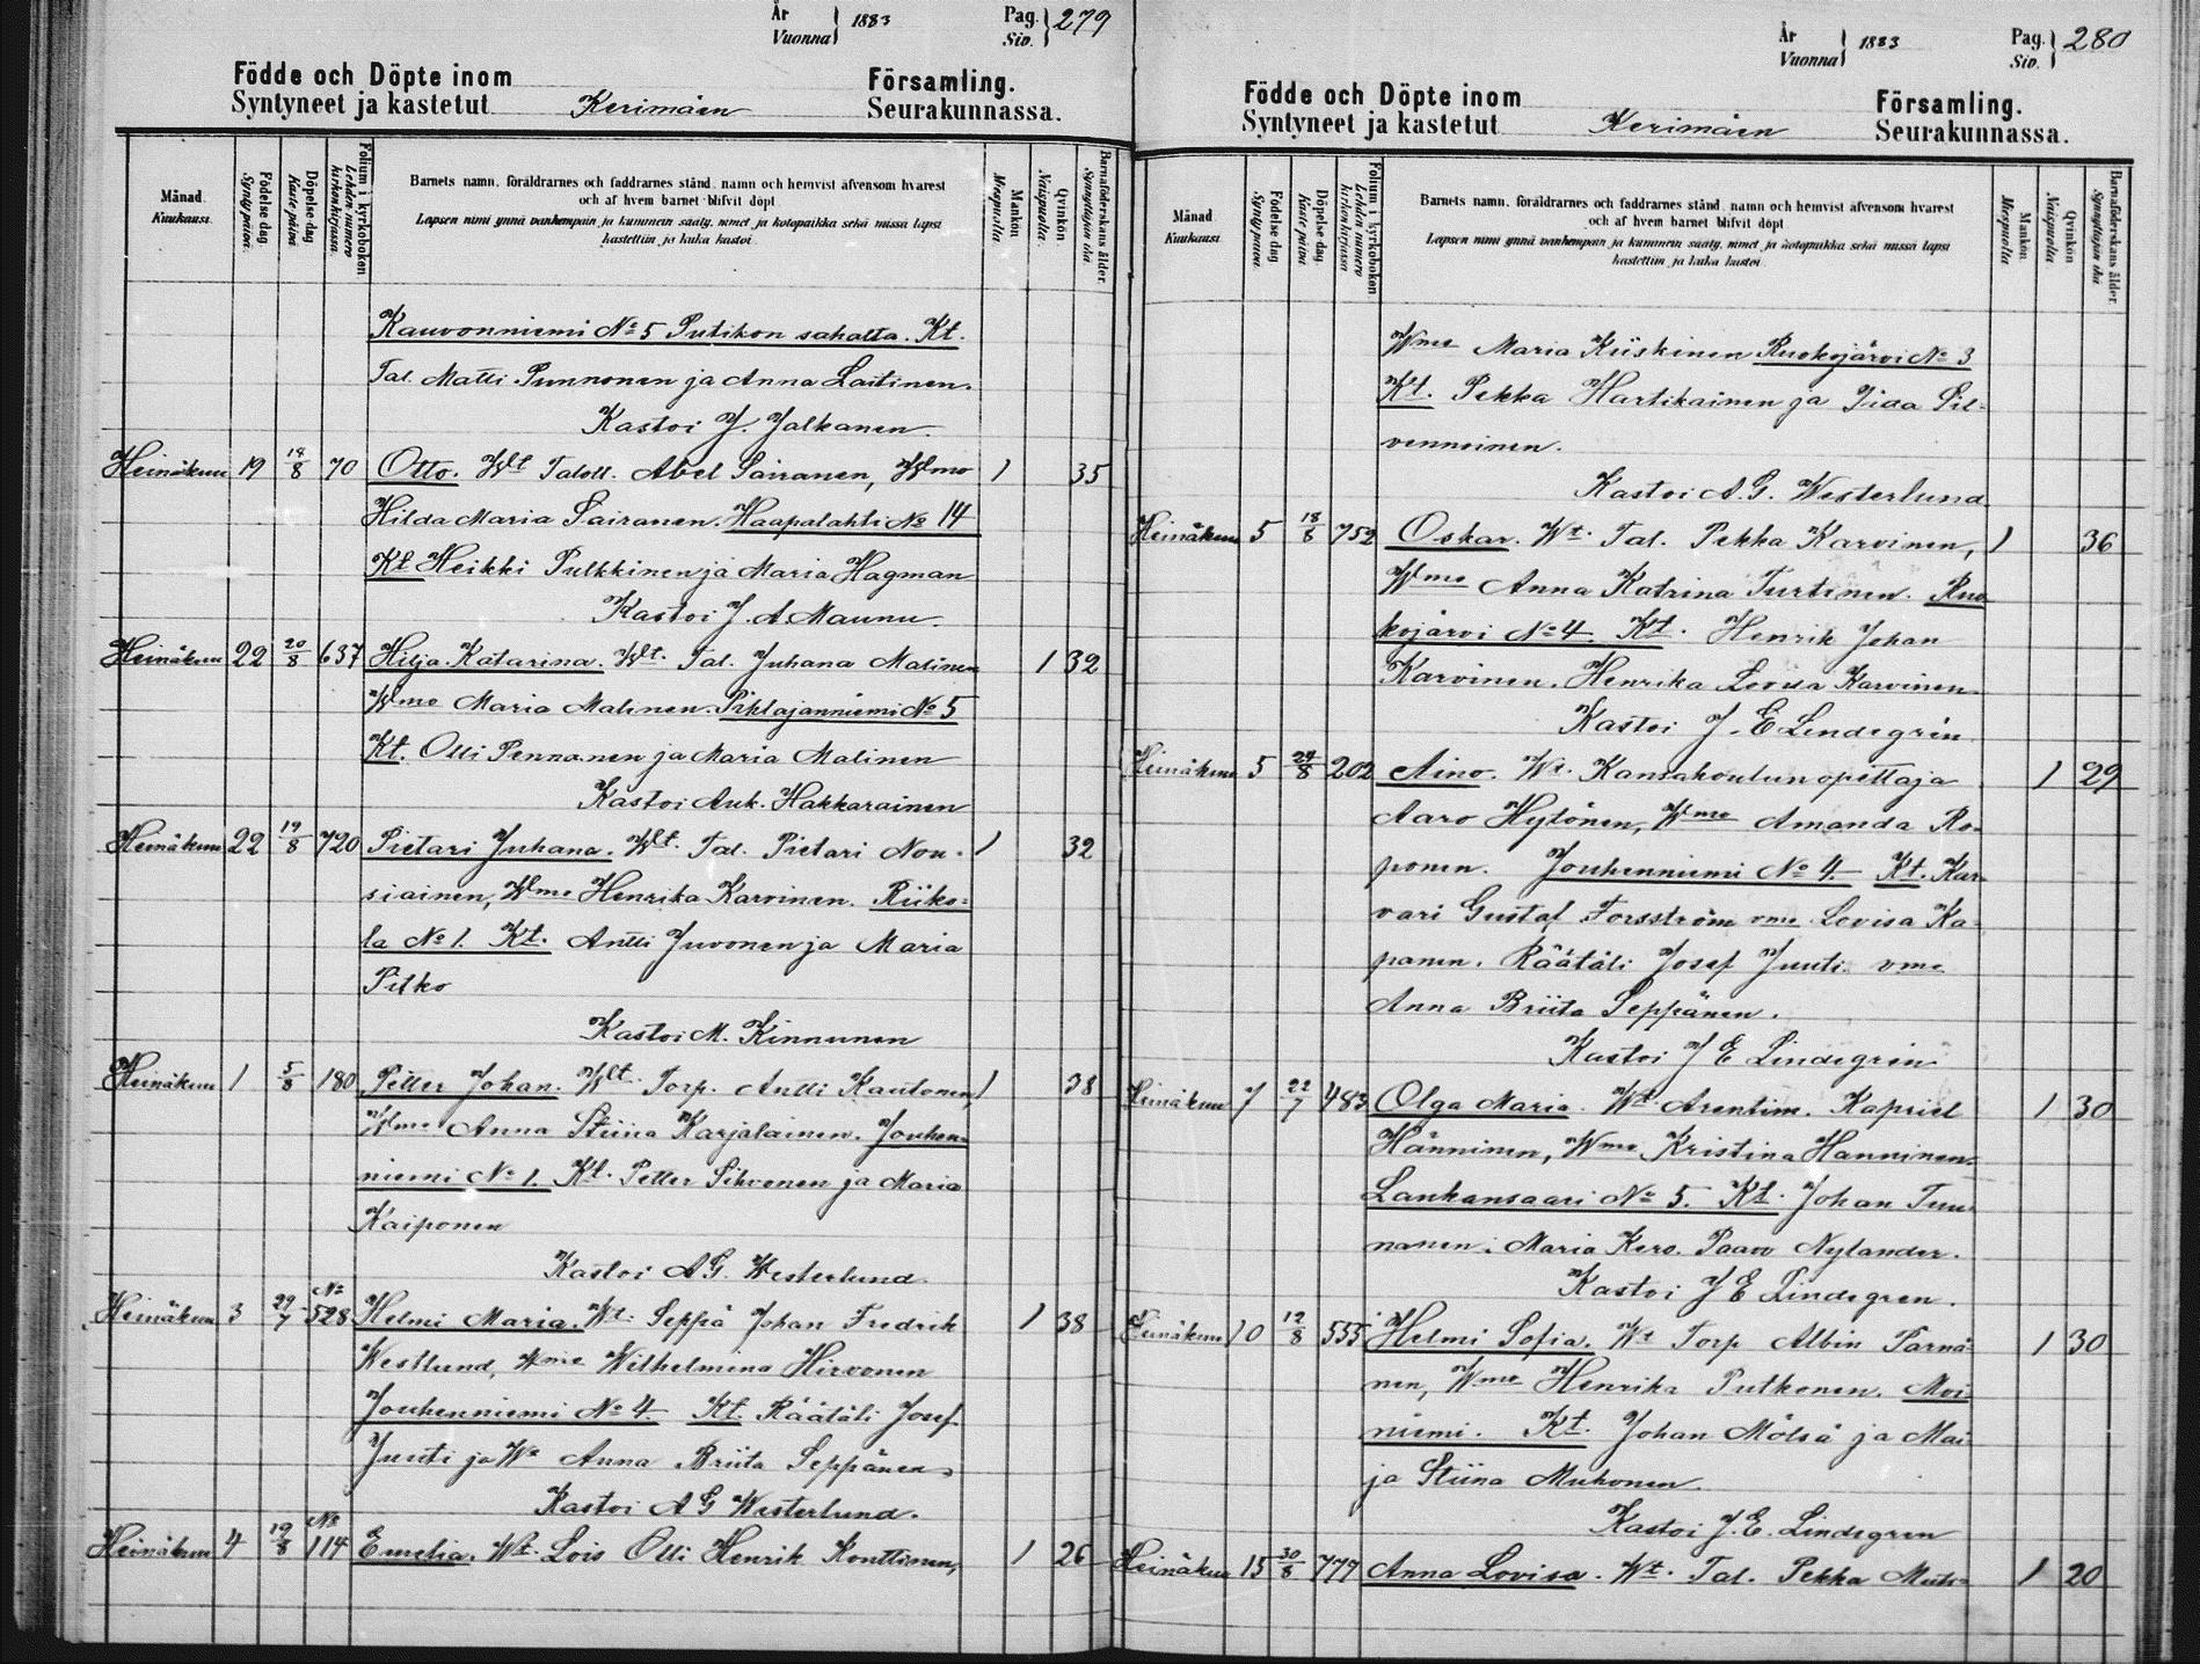 År
Vuonna } 1883 Pag.
Siv. } 279
Födde och Döpte inom Församling.
Syntyneet ja kastetut Kerimäen Seurakunnassa.
Månad.
Kuukausi.
Födelse dag
Synty päivä.
Döpelse dag
Kaste päivä
Folium i kyrkoboken
Lehden numero
kirkonkirjassa.
Barnets namn, föräldrarnes och faddrarnes stånd, namn och hemvist äfvensom hvarest
och af hvem barnet blifvit döpt
Lapsen nimi ynnä vanhempain ja kummein sääty, nimet ja kotopaikka sekä missä lapsi
kastettiin ja kuka kastoi.
Mankön
Miespuolta
Qvinkön
Naispuolta
Barnaföderskans ålder.
Synnyttäjän ikä.
Kauvonniemi No 5 Putikon sahalta. Kt.
Tal. Matti Punnonen ja Anna Laitinen.
Kastoi J. Jalkanen.
Heinäkuu 19 18/8 70 Otto. Wlt Taloll. Abel Sairanen, Wlmo 1 35
Hilda Maria Sairanen. Haapalahti No 14
Kt Heikki Pulkkinen ja Maria Hagman
Kastoi J. A. Maunu.
Heinäkuu 22 20/8 637 Hilja Katarina. Wlt. Tal. Juhana Malinen 1 32
Wlmo Maria Malinen. Pihlajanniemi No 5
Kt. Olli Pennanen ja Maria Malinen
Kastoi Auk. Hakkarainen
Heinäkuu 22 19/8 720 Pietari Juhana. Wlt. Tal. Pietari Nou- 1 32
siainen, Wlmo Henrika Karvinen. Riiko-
la No 1. Kt. Antti Juvonen ja Maria
Pitko
Kastoi M. Kinnunen
Heinäkuu 1 5/8 180 Petter Johan. Wlt. Torp. Antti Kautonen, 1 38
Wlmo Anna Stiina Karjalainen. Jouhen-
niemi No 1. Kt. Petter Sihvonen ja Maria
Kaiponen
Kastoi A G. Westerlund.
Heinäkuu 3 29/7 No 528 Helmi Maria. Wt. Seppä Johan Fredrik 1 38
Westlund, Wmo Wilhelmina Hirvonen
Jouhenniemi No 4. Kt. Räätäli Josef
Juuti ja Wo Anna Briita Seppänen
Kastoi A G Westerlund.
Heinäkuu 4 19/8 No 114 Eurelia. Wt. Lois Olli Henrik Konttinen, 1 26
År
Vuonna } 1883 Pag.
Siv. } 280
Födde och Döpte inom Församling.
Syntyneet ja kastetut Kerimäen Seurakunnassa.
Månad
Kuukausi
Födelse dag
Synty päivä.
Döpelse dag.
Kaste päivä
Folium i kyrkoboken
Lehden numero
kirkonkirjassa
Barnets namn, föräldrarnes och faddrarnes stånd, namn och hemvist äfvensom hvarest
och af hvem barnet blifvit döpt
Lapsen nimi ynnä vanhempain ja kummein sääty, nimet ja kotopaikka sekä missä lapsi
kastettiin ja kuka kastoi.
Mankön
Miespuolta
Qvinkön
Naispuolta
Barnaföderskans ålder.
Synnyttäjän ikä
Wmo Maria Kiiskinen Ruokojärvi No 3
Kt. Pekka Hartikainen ja Iida Sil-
vennoinen.
Kastoi A. G. Westerlund
Heinäkuu 5 18/8 752 Oskar. Wt. Tal. Pekka Karvinen, 1 36
Wlmo Anna Katrina Turtinen. Ruo
kojärvi No 4. Kt. Henrik Johan
Karvinen. Henrika Loviisa Karvinen
Kastoi J. E Lindegrén
Heinäkuu 5 24/8 202 Aino. Wt. Kansakoulun opettaja 1 29
Aaro Hytönen, Wlmo Amanda Ro-
ponen. Jouhenniemi No 4. Kt. Kar-
vari Gustaf Forsström vmo Lovisa Ka-
panen. Räätäli Josef Juuti vmo
Anna Briita Seppänen.
Kastoi J E Lindegrén
Heinäkuu 7 22/7 483 Olga Maria. Wt. Arentim. Kapriel 1 30
Hänninen, Wmo Kristina Hänninen.
Laukansaari No 5. Kt. Johan Tuu-
nanen. Maria Kero. Paavo Nylander.
Kastoi J E Lindegren.
Heinäkuu 10 12/8 555 Helmi Sofia. Wt Torp Albin Parnä- 1 30
nen, Wmo Henrika Putkonen. Moi
niemi. Kt. Johan Mölsä ja Mai
ja Stiina Muhonen.
Kastoi J. E. Lindegren
Heinäkuu 15 30/8 777 Anna Lovisa. Wt. Tal. Pekka Muh- 1 20